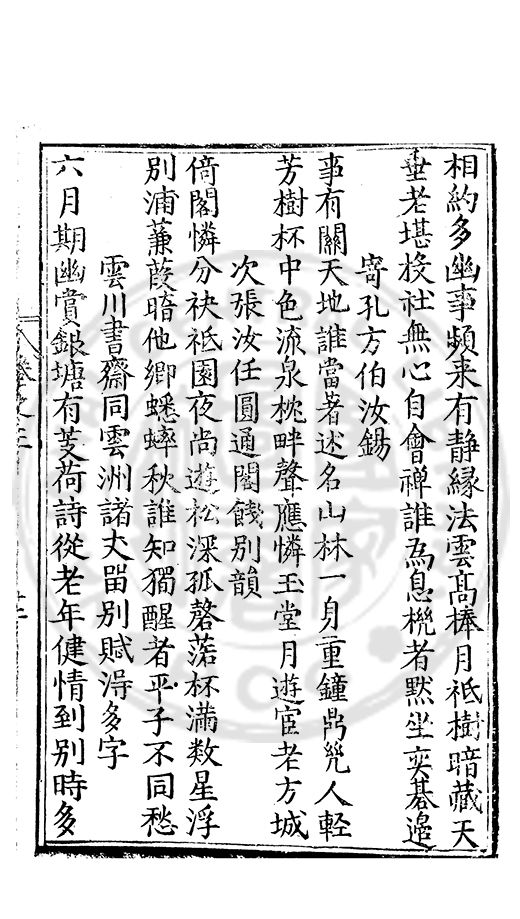 相約多幽事頻来有静緣法雲髙棒月祗樹暗藏天
垂老堪投社無心自會禅誰為息機者默坐奕碁邉
寄孔方伯汝錫
事有關天地誰當著述名山林一身重鐘鼎幾人輕
芳樹杯中色流泉枕畔聲應憐玉堂月遊宦老方城
次張汝任圓通閣餞别韻
倚閣憐分袂祗園夜尚遊松深孤磬落杯滿数星浮
别浦蒹葭暗他鄉蟋蟀秋誰知獨醒者平子不同愁
雲川書齋同雲洲諸丈畱别賦淂多字
六月期幽賞銀塘有芰荷詩從老年健情到别時多